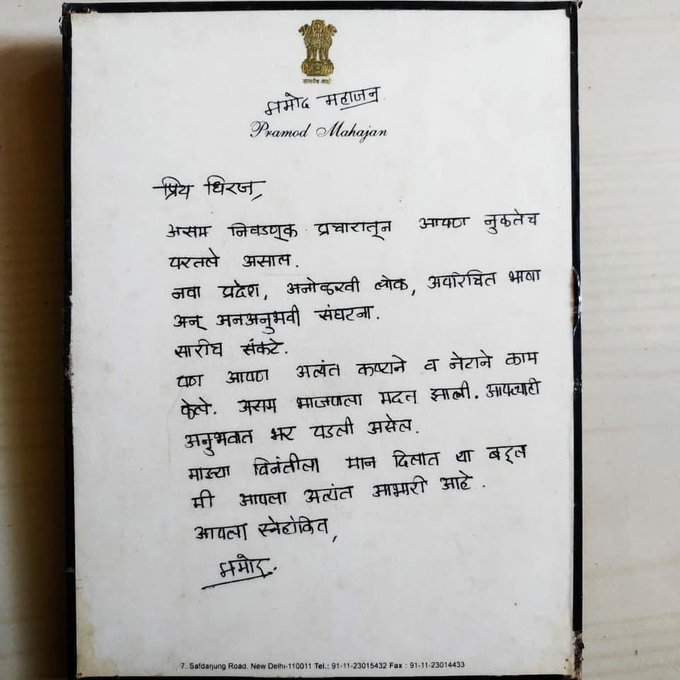 सत्यमेव जयते
प्रमोद महाजन
Pramod Mahajan
प्रिय धिरज,
असम निवडणूक प्रचारातून आपण नुकतेच
परतले असाल.
नवा प्रदेश, अनोळखी लोक, अपरिचित भाषा
अन् अनअनुभवी संघटना.
सारीच संकटे.
पण आपण अत्यंत कष्टाने व नेटाने काम
केले. असम भाजपला मदत झाली. आपल्याही
अनुभवात भर पडली असेल.
माझ्या विनंतीला मान दिलात या बद्दल
मी आपला अत्यंत आभारी आहे.
आपला स्नेहांकित,
प्रमोद.
7, Safdarjung Road, New Delhi-110011 Tel.: 91-11-23015432 Fax : 91-11-23014433